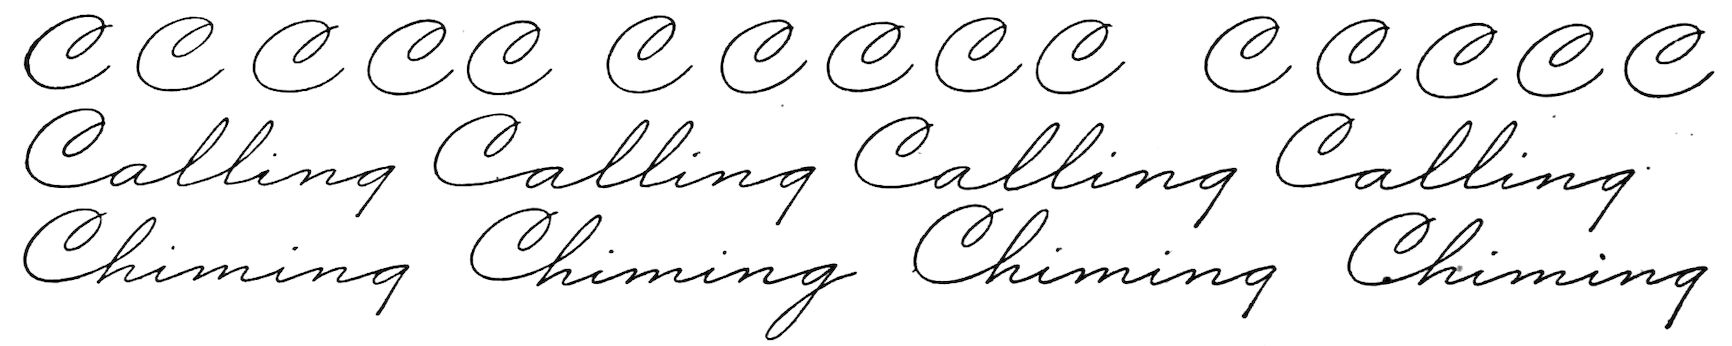 C C C C C C C C C C C C C C C
Calling Calling Calling Calling
Chiming Chiming Chiming Chiming